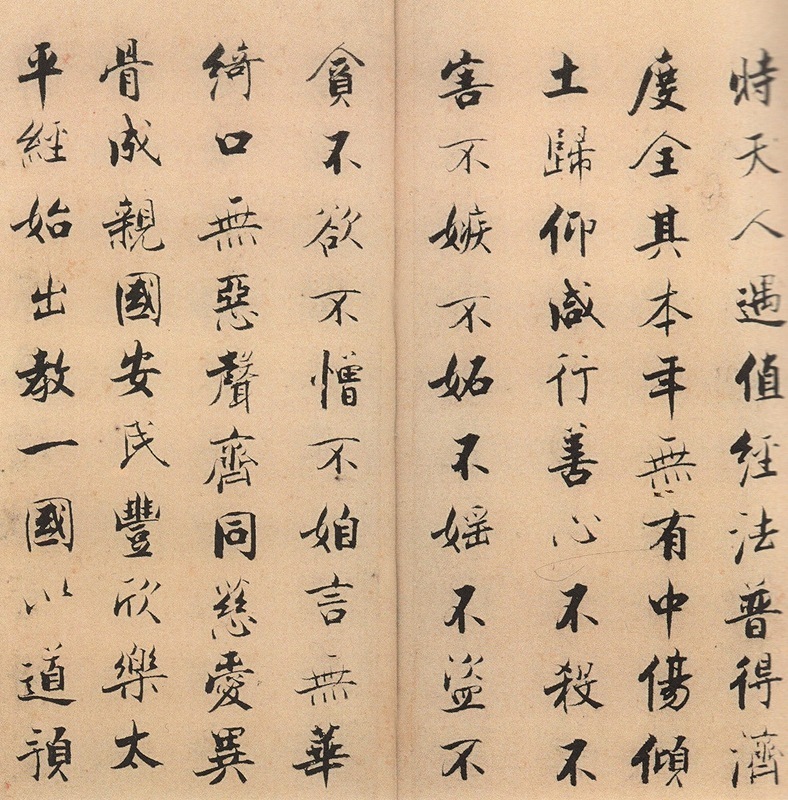 時天人遇值經法普得濟
度全其本年無有中傷傾
土歸仰咸行善心不殺不
害不嫉不妬不婬不盜不
貪不欲不憎不妒言無華
綺口無惡聲齊同慈愛異
骨成親國安民豐欣樂太
平經始出教一國以道預